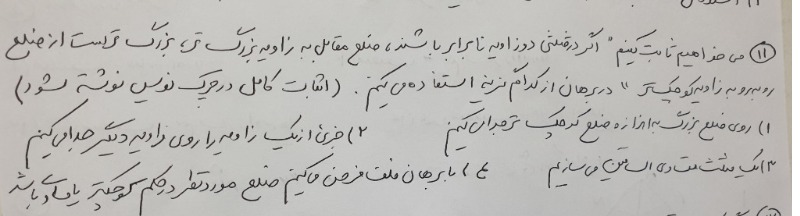 ۱۱) می خواهیم ثابت کنیم " اگر در مثلثی دو زاویه نابرابر باشند، ضلع مقابل به زاویه بزرگ تر، بزرگ تر است از ضلع
روبه رو به زاویه کوچکتر " در برهان از کدام گزینه استفاده می کنیم. (اثبات کامل در چرک نویس نوشته شود)
۱) روی ضلع بزرگ به اندازه ضلع کوچک تر جدا می کنیم ۲) جزئی از یک زاویه را روی زاویه دیگر جدا می کنیم
۳) یک مثلث متساوی الساقین می سازیم ۴) با برهان خلف فرض می کنیم ضلع مورد نظر در حکم کوچکتر یا مساوی باشد